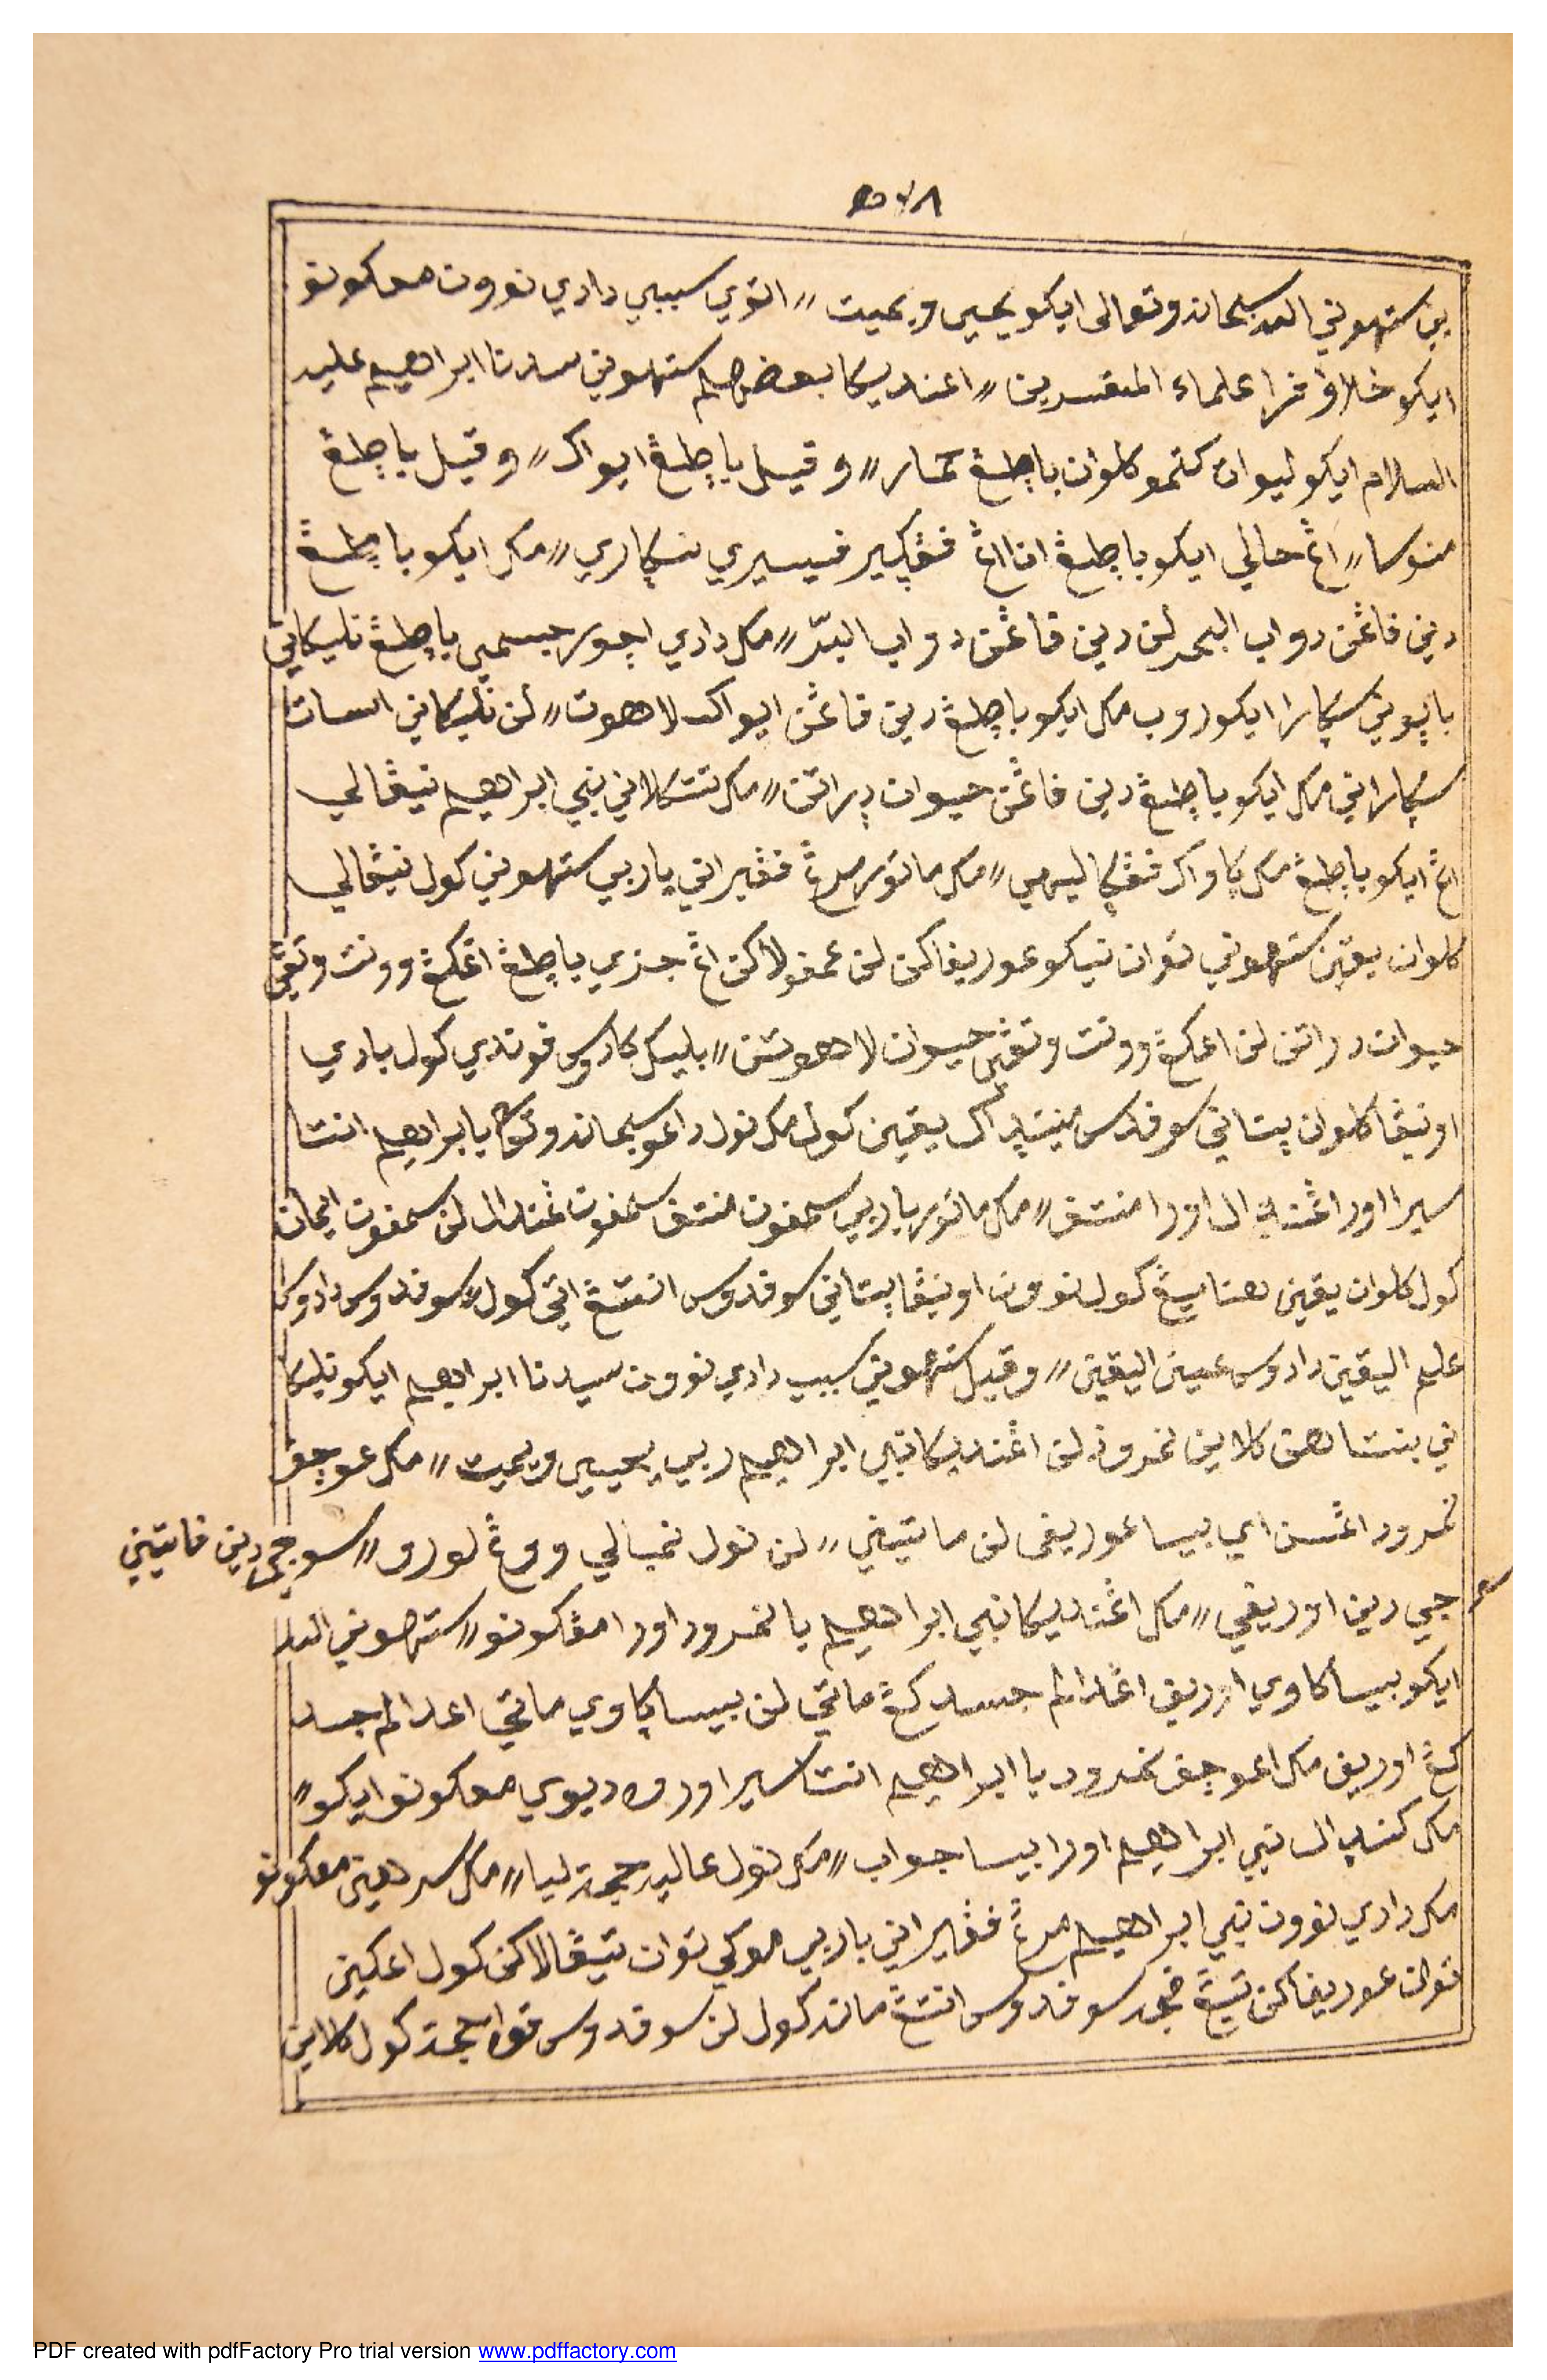 ٥٧٨
ين ستهوني الله سبحانه وتعالى ايكو يحيي ويميت // اتوي سببي دادي نوون معكونو
ايكو خلاف فرا علماء المفسرين // اعنديكا بعضهم ستهوني سيدنا ابراهيم عليه
السلام ايكو ليوات كتمو كلوان باطڠ حمار // وقيل باطڠ ايواك // وقيل باطڠ
منوسا // اڠ حالي ايكو باطڠ انا اڠ ڤڠڮير ڤيسيري سڮاري // مك ايكو باطڠ
دين ڤاڠن دواب البحر لن دين ڤاڠن دواب البرّ // مك دادي اجور جسمي باطڠ تليكاني
بايوني سڮارا ايكو روب مك ايكو باطڠ دين ڤاڠن ايواك لاهوت // لن تليكاني اسات
سڮاراني مك ايكو باطڠ دين ڤاڠن حيوان دراتن // مك تتكلاني نبي ابراهيم نيڠالي
اڠ ايكو باطڠ مك ڮاواك ڤڠڮاليهي // مك ماتور مرڠ ڤڠيراني ياربي ستهوني كول نيڠالي
كلوان يقين ستهوني توان نيكو عوريفاكن لن عمفولاكن اڠ جزي باطڠ اڠكڠ وونت وتڠي
حيوان دراتن لن اڠكڠ وونت وتڠي حيوان لاهوتن // بليك كادوس فوندي كول بادي
اونيڠا كلوان پتاني سوفدوس يقين كول مك نول داعو سبحانه وتعالى يا ابراهيم انتا
سيرا اورا اڠنديل اورا منتف // مك ماتور ياربي سمفون منتف سمفون ڠندل لن سمفون ايمان
كول كلوان يقين هناميڠ كول نوون اونيڠا پتاني سوفدوس انتڠ اتي كول // سوفدوس دادوس
علم اليقين دادوس عين اليقين // وقيل ستهوني سبب دادي نوون سيدنا ابراهيم ايكو تليكا
ني بنتاهن كلاين نمرود لن اڠنديكا نبي ابراهيم ربي يحيي ويميت // مك عوجف
نمرود اڠسن اي بيسا عوريفي لن ماتيني // لن نول نمبالي ووڠ لورو // سوجي دين فاتيني
جي دين اوريفي // مك اڠنديكا نبي ابراهيم يا نمرود اورا مڠكونو // ستهوني الله
ايكو بيسا ڮاوي اوريف اڠدالم جسد كڠ ماتي لن بيسا ڮاوي ماتي اعدالم جسد
كڠ اوريف مك اعوجف نمرود يا ابراهيم انتا سيرا اوروه ديوي معكونو ايكو //
مك كنديل نبي ابراهيم اورا بيسا جواب // مك نول عاليه حجة ليا // مك سرهني معكونو
مك دادي نوون نبي ابراهيم مرڠ ڤڠيراني ياربي موكي توان نيڠالاكن كول اعكين
توان عوريفاكن تيڠ سوفدوس انتڠ ماته كول لن سوفدوس قوة حجة كول كلاين
PDF created with pdfFactory Pro trial version www.pdffactory.com